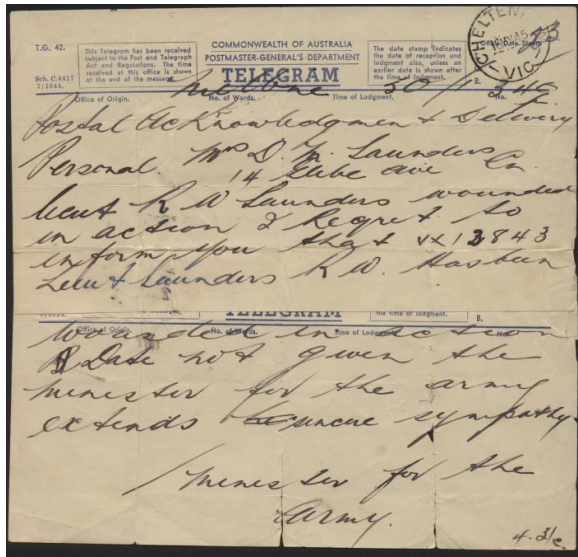 T.G. 42.
Sch. C.4417
7/1944.
This Telegram has been received
subject to the Post and Telegraph
Act and Regulations. The time
received at this office is shown
at the end of the message.
COMMONWEALTH OF AUSTRALIA
POSTMASTER-GENERAL'S DEPARTMENT
TELEGRAM
The date stamp indicates
the date of reception and
lodgment also, unless an
earlier date is shown after
the time of lodgment.
Office Date Stamp
CHELTEN
VIC
B.
Office of Origin. No. of Words. Time of Lodgment. No.
Melbourne
Postal Acknowledgment Delivery
Personal. Mrs D. M. Saunders
14 Glebe ave
lieut R W Saunders wounded
in action I Regret to
inform you that VX12843
Lieut Saunders R W. Has been
TELEGRAM
the time of lodgment.
B.
Office of Origin. No. of Words. Time of Lodgment. No.
wounded in action
Date not given the
minister for the army
extends sincere sympathy
minister for the
Army.